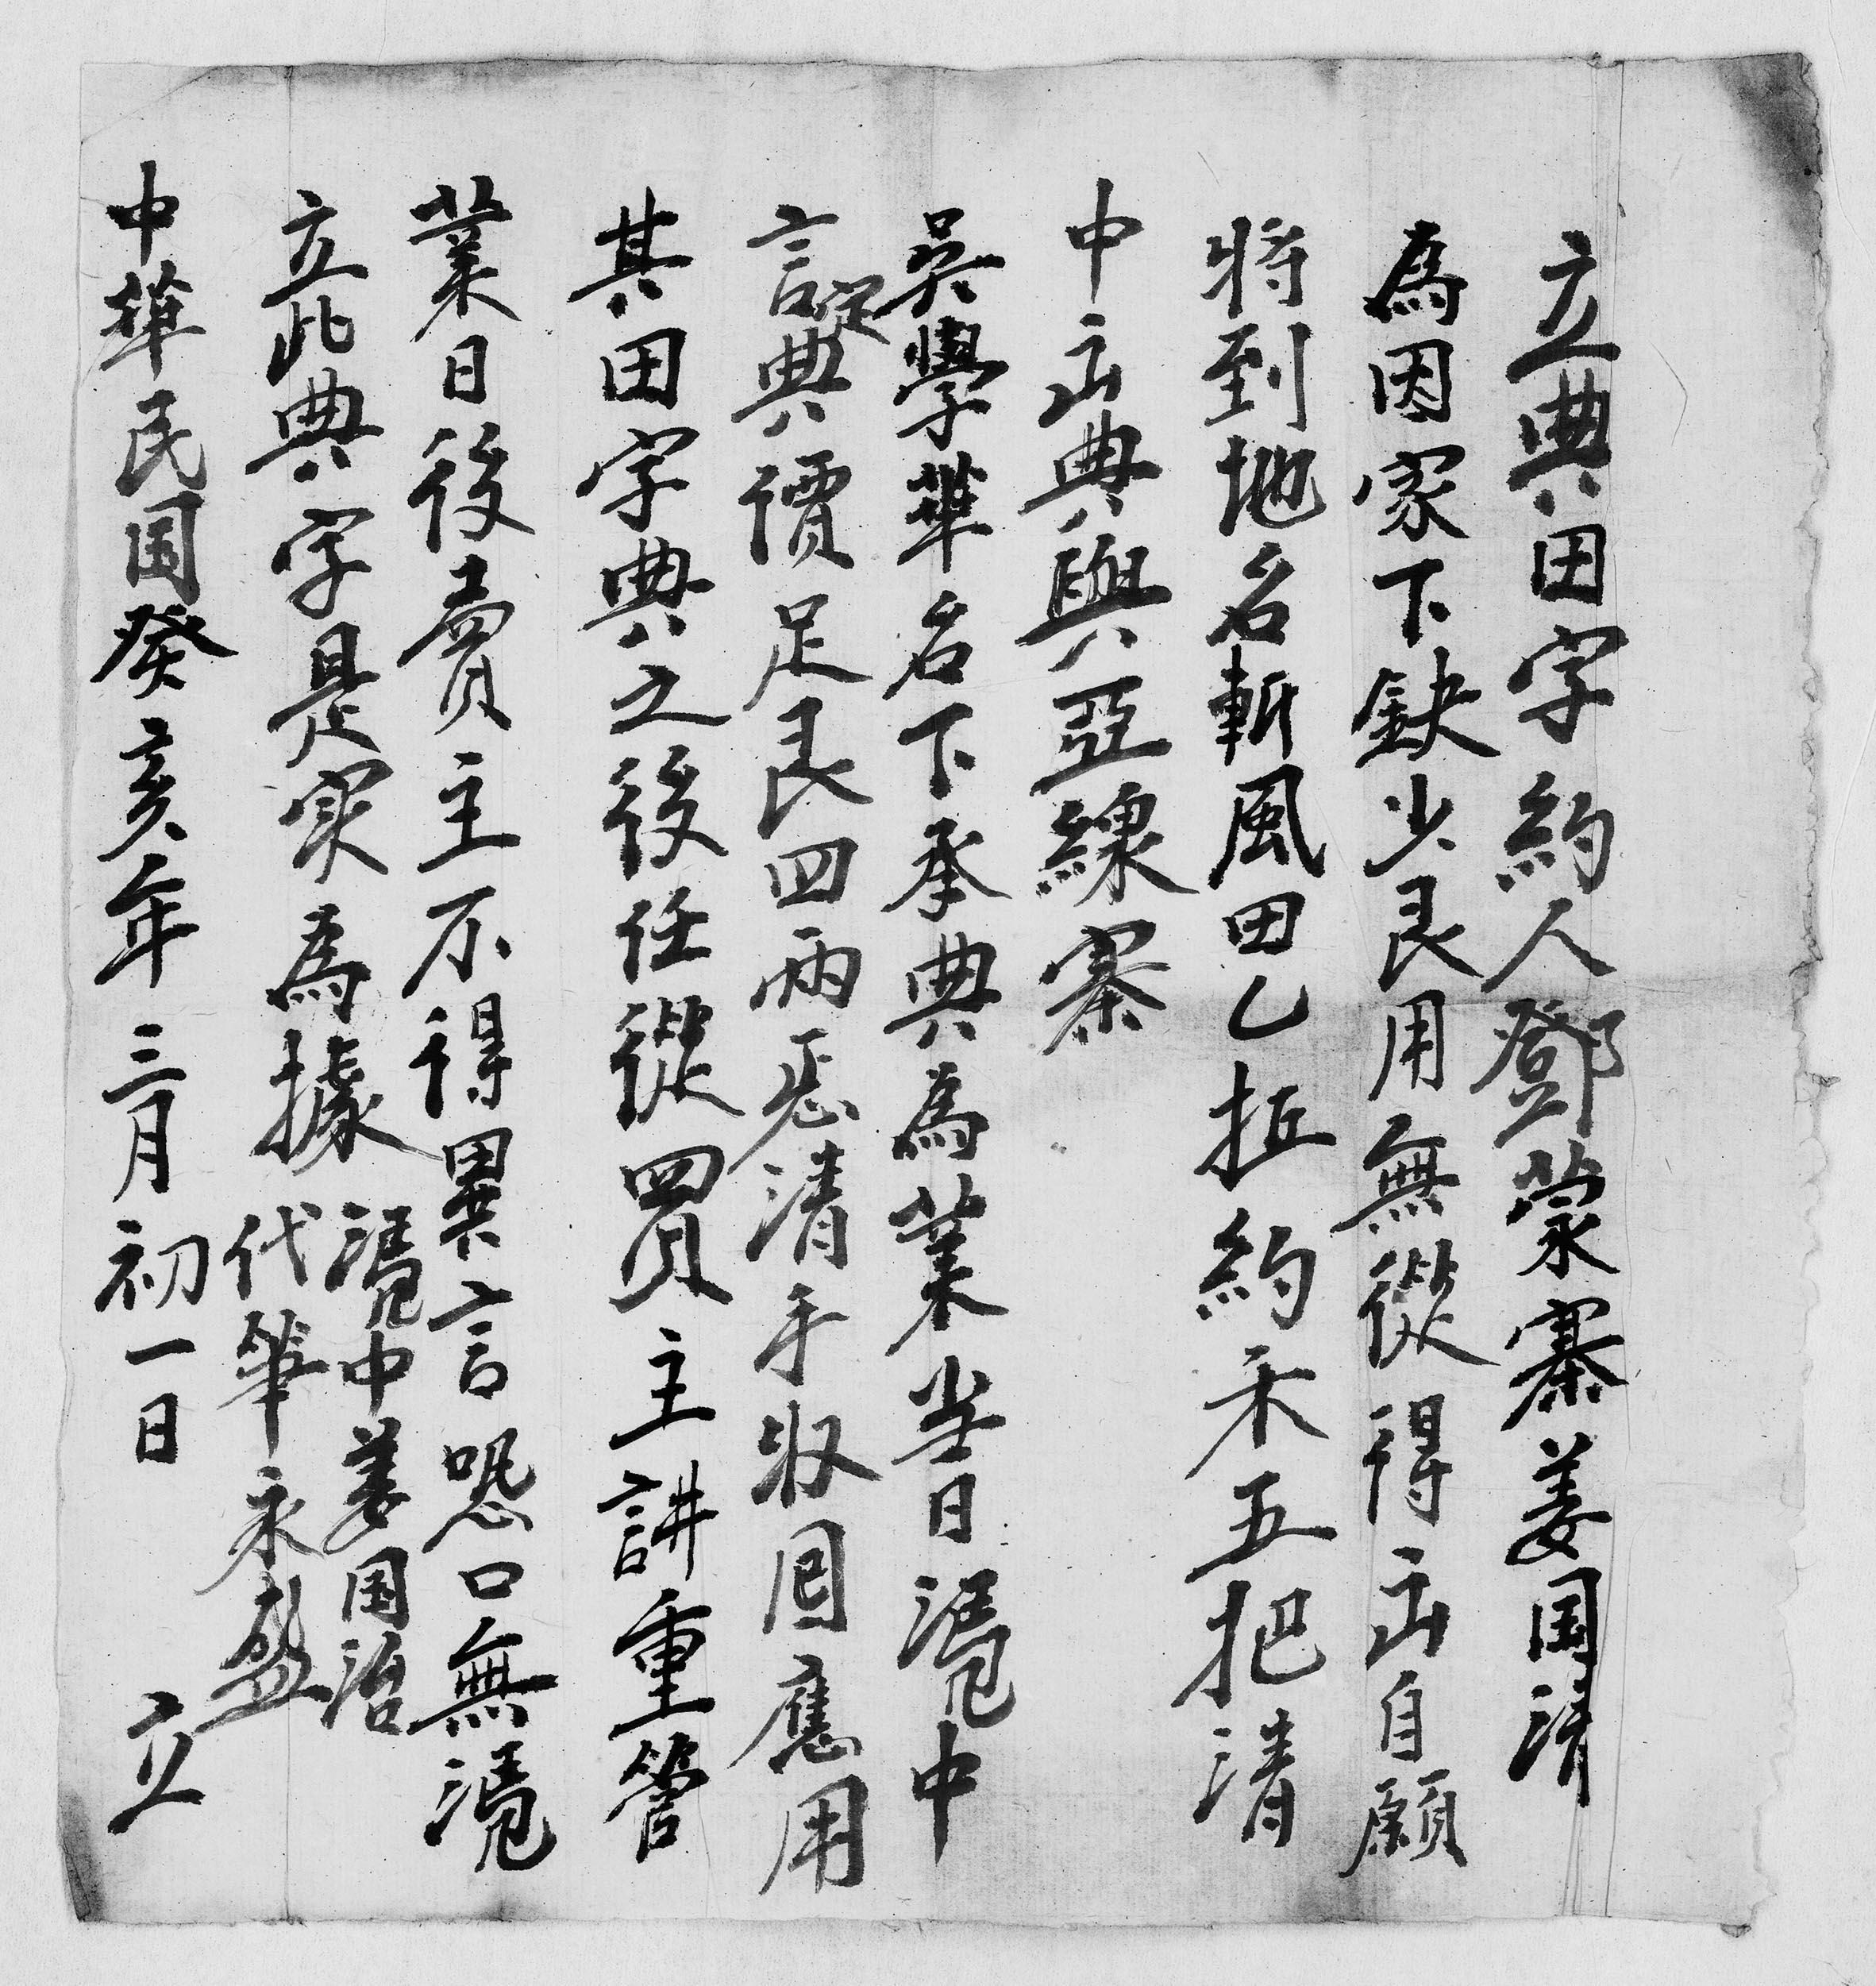 立典田字約人鄧蒙寨姜国清
為因家下缺少艮用無從得出自願
將到地名斬風田乙坵約禾五把清
中出典與亞線寨
吳學華名下承典為業当日凴中
言定典價足艮四兩恁清手收囘應用
其田字典之後任從買主耕重管
業日後賣主不得異言恐口無凴
立此典字是实為據
凴中姜国治
代筆永盛
中華民国癸亥年三月初一日 立